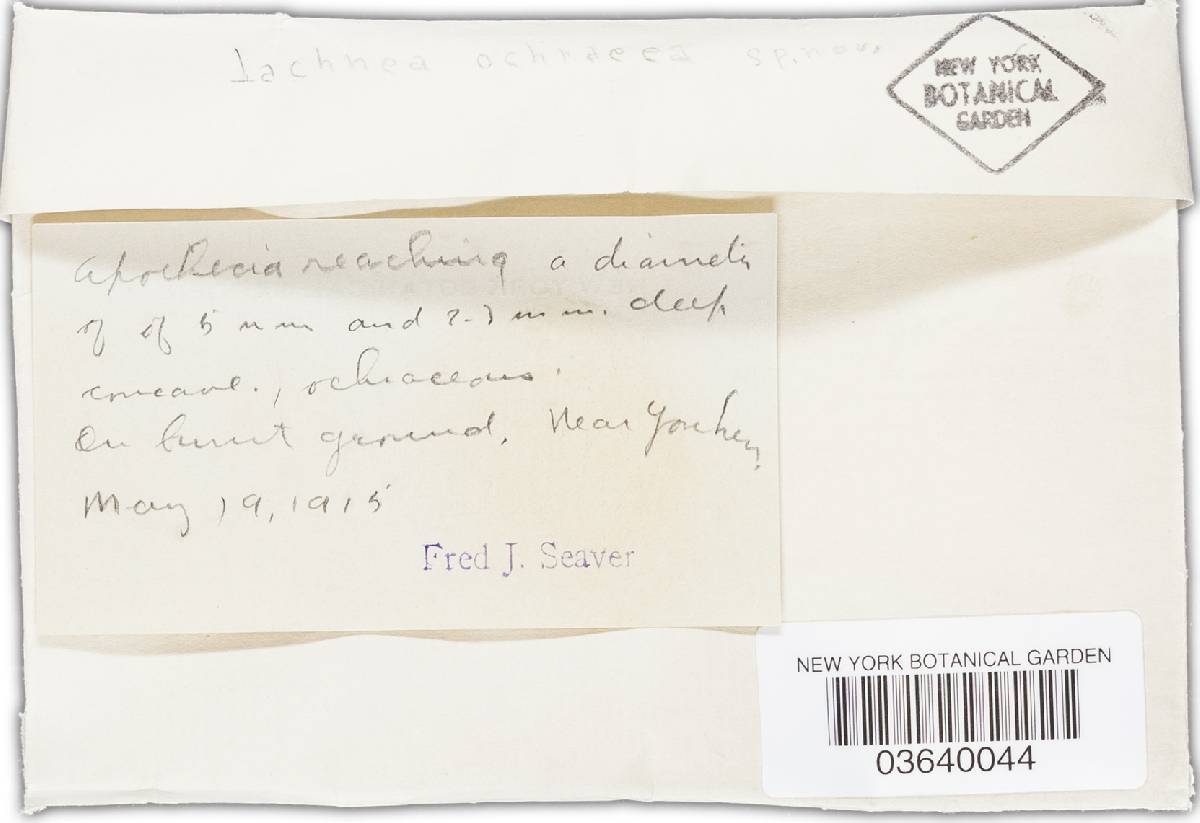 Lachnea ochracea sp. nov.
NEW YORK
BOTANICAL
GARDEN
Apothecia reaching a diameter
of of 5 mm and 2-3 mm. deep
concave., ochraceous.
On burnt ground, Near Yonkers,
May 19, 1915
Fred J. Seaver
NEW YORK BOTANICAL GARDEN
03640044